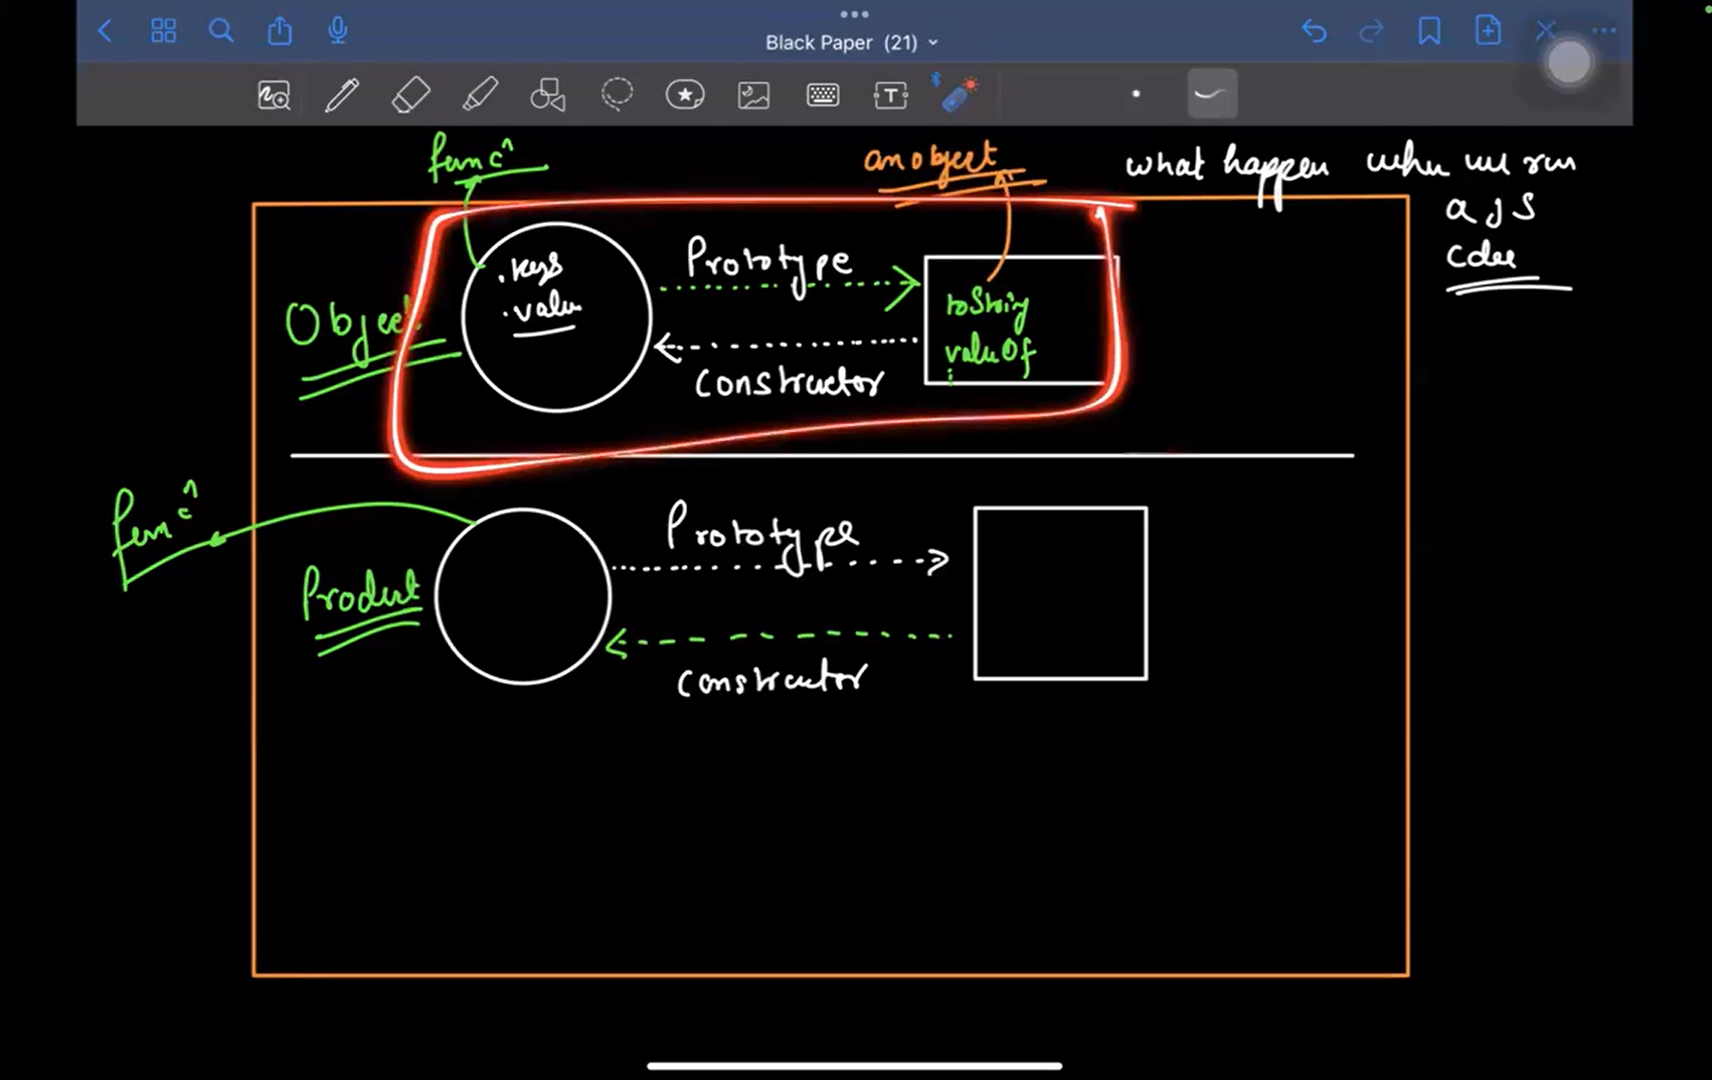 Black Paper (21)
T
funcⁿ
an object
what happen when we run
a JS
Code
Object
.keys
.value
Prototype
constructor
toString
valueOf
funcⁿ
Product
Prototype
constructor